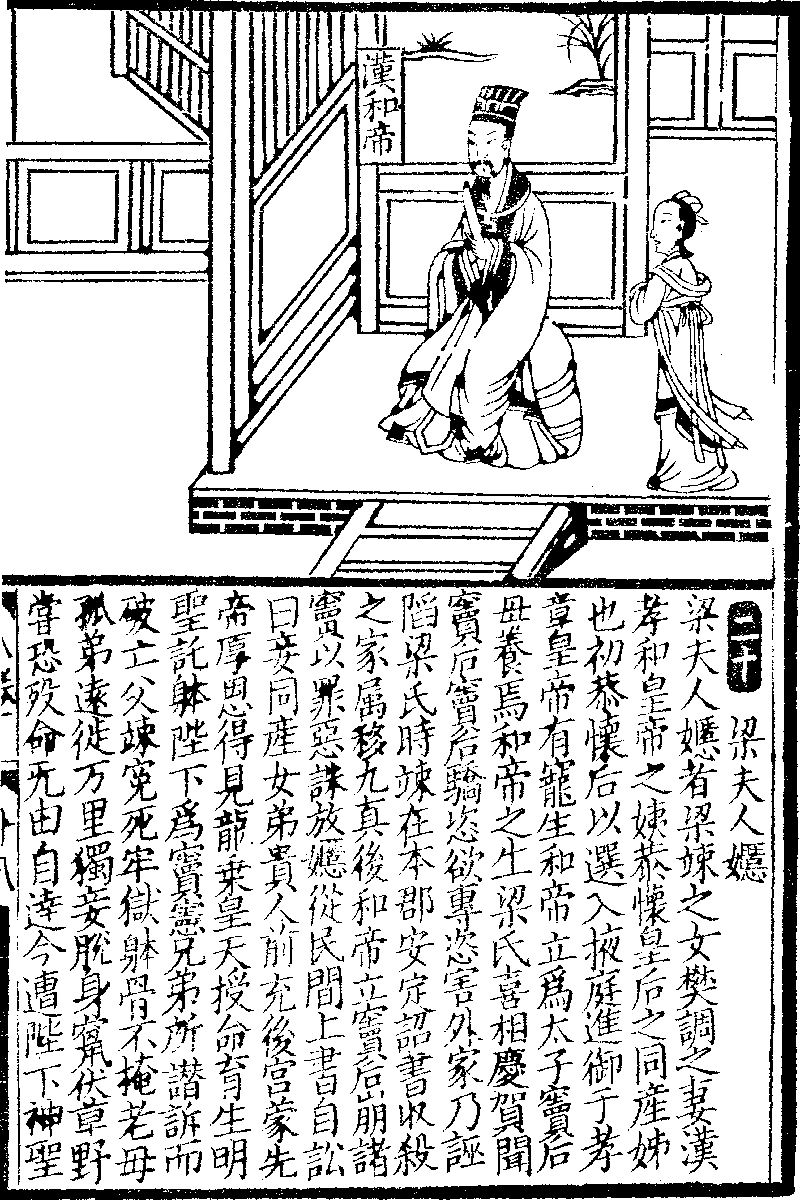 漢和帝
二十
梁夫人嫕
梁夫人嫕者梁竦之女樊調之妻漢
孝和皇帝之姨恭懷皇后之同産姊
也初恭懷后以選入掖庭進御于孝
章皇帝有寵生和帝立爲太子竇后
母養焉和帝之生梁氏喜相慶賀聞
竇后竇后驕恣欲專恣害外家乃誣
陷梁氏時竦在本郡安定詔書收殺
之家属移九真後和帝立竇后崩諸
竇以罪惡誅放嫕從民間上書自訟
曰妾同産女弟貴人前充後宮蒙先
帝厚恩得見龍乗皇天授命育生明
聖託躰陛下爲竇憲兄弟所譖訴而
破亡父竦寃死牢獄躰骨不掩老母
孤弟遠徙万里獨妾脫身竄伏草野
嘗恐殁命无由自達今遭陛下神聖